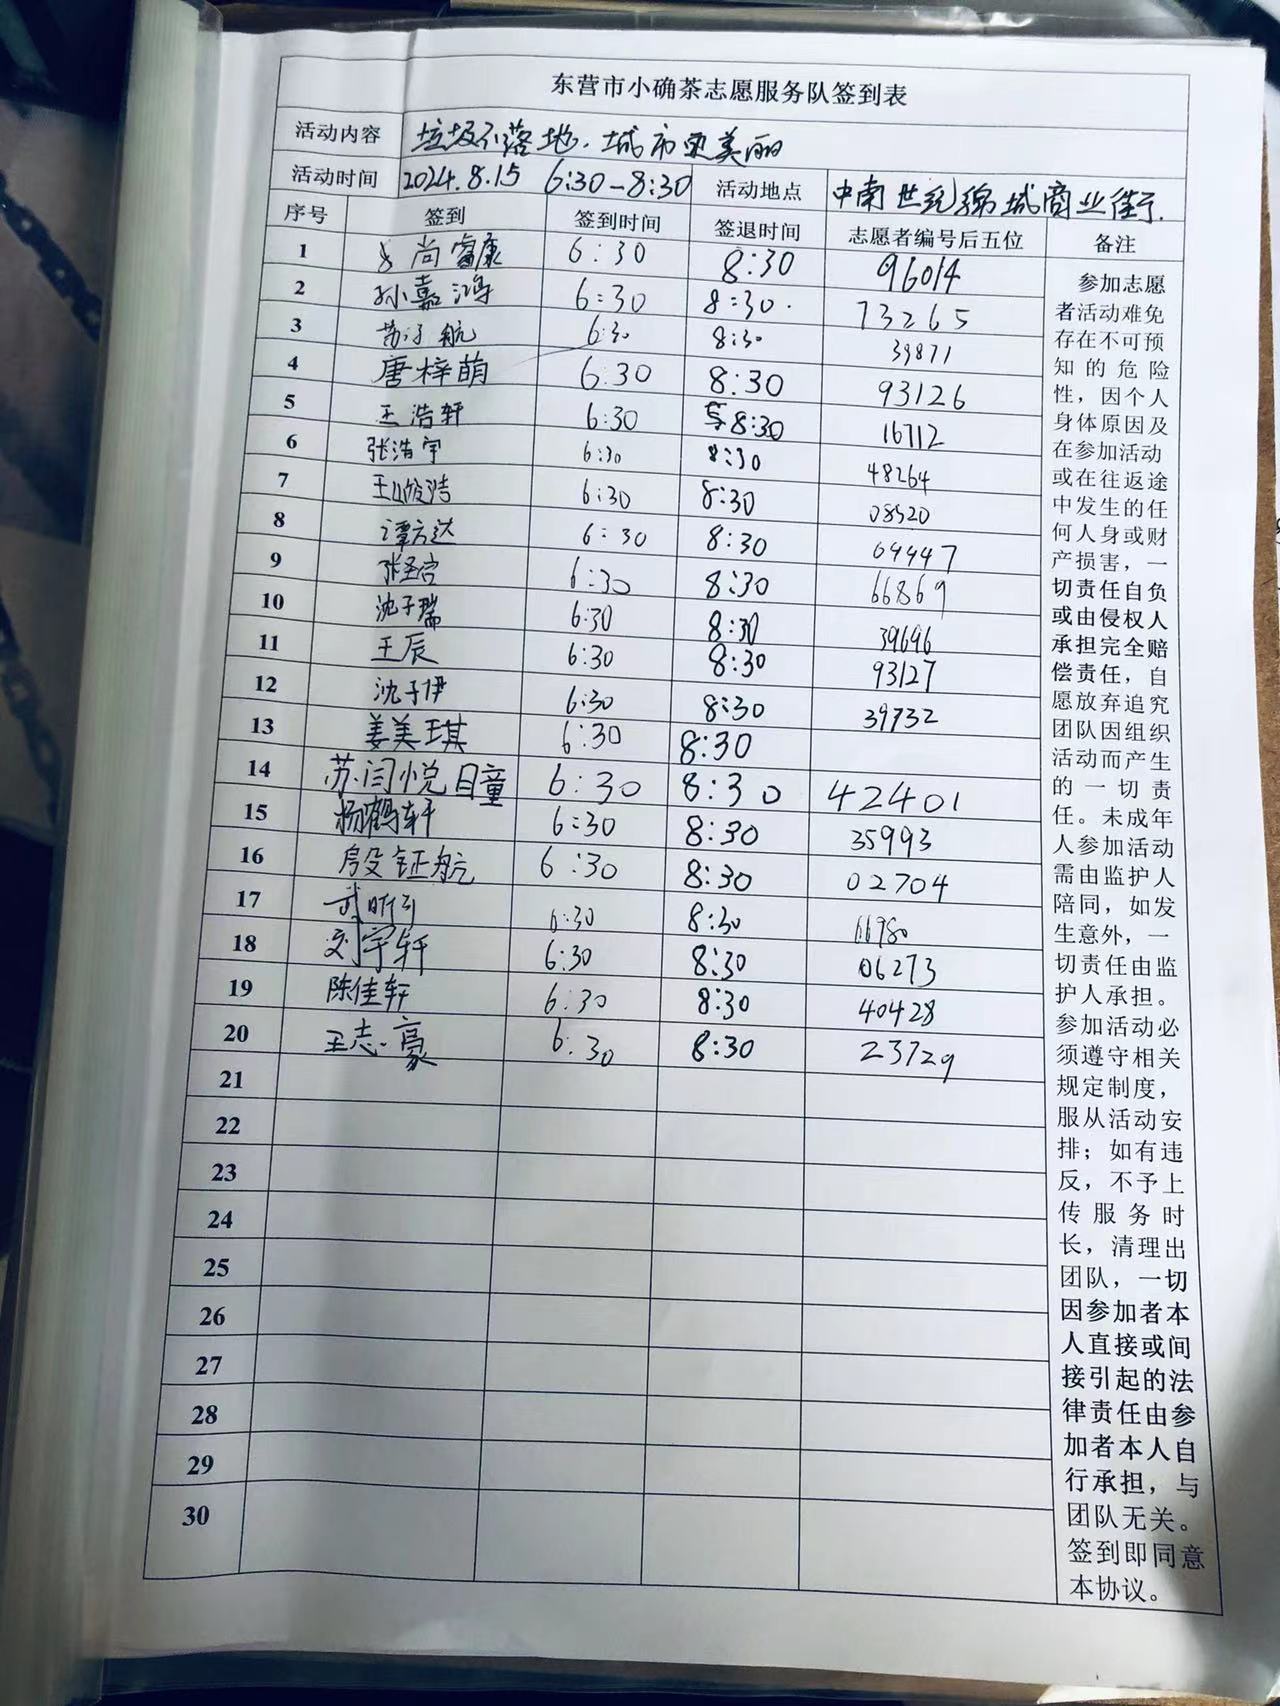 东营市小确茶志愿服务队签到表
活动内容 垃圾不落地.城市更美丽
活动时间 2024.8.15 6:30-8:30 活动地点 中南世纪锦城商业街
序号 签到 签到时间 签退时间 志愿者编号后五位 备注
1 尚富康 6:30 8:30 96014
2 孙嘉鸿 6:30 8:30 73265
3 苏子航 6:30 8:30 39871
4 唐梓萌 6:30 8:30 93126
5 王浩轩 6:30 8:30 16712
6 张浩宇 6:30 8:30 48264
7 王皎洁 6:30 8:30 08520
8 谭方达 6:30 8:30 69447
9 张圣启 6:30 8:30 66869
10 沈子瑞 6:30 8:30 39696
11 王辰 6:30 8:30 93127
12 沈子伊 6:30 8:30 39732
13 姜美琪 6:30 8:30
14 苏闫悦瞳 6:30 8:30 42401
15 杨鹤轩 6:30 8:30 35993
16 殷钲航 6:30 8:30 02704
17 武昕 6:30 8:30 66980
18 刘宇轩 6:30 8:30 06273
19 陈佳轩 6:30 8:30 40428
20 王志豪 6:30 8:30 23729
21
22
23
24
25
26
27
28
29
30
参加志愿
者活动难免
存在不可预
知的危险
性，因个人
身体原因及
在参加活动
或在往返途
中发生的任
何人身或财
产损害，一
切责任自负
或由侵权人
承担完全赔
偿责任，自
愿放弃追究
团队因组织
活动而产生
的一切责
任。未成年
人参加活动
需由监护人
陪同，如发
生意外，一
切责任由监
护人承担。
参加活动必
须遵守相关
规定制度，
服从活动安
排；如有违
反，不予上
传服务时
长，清理出
团队，一切
因参加者本
人直接或间
接引起的法
律责任由参
加者本人自
行承担，与
团队无关。
签到即同意
本协议。